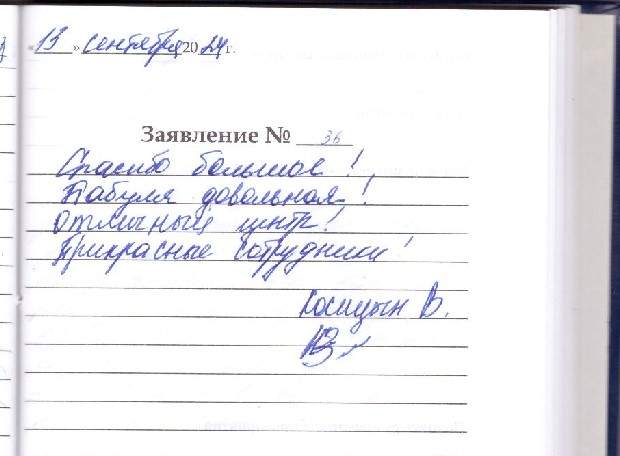 «13» сентября 2024 г.
Заявление № 36
Спасибо большое!
Бабуля довольная!
Отличный центр!
Прикрасные сотрудники!
Косицын В.